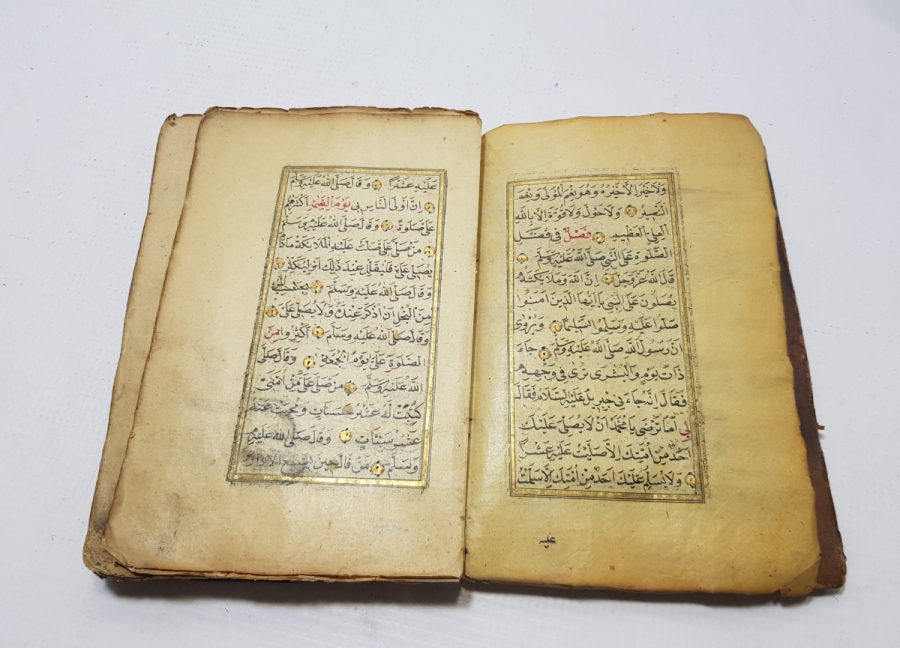 ولا خير الا خيره وهو نعم المولى ونعم
النصير ولا حول ولا قوة الا بالله
العلي العظيم فصل في فضل
الصلوة على النبي صلى الله عليه وسلم
قال الله عز وجل ان الله وملائكته
يصلون على النبي يا ايها الذين امنوا
صلوا عليه وسلموا تسليما ويروى
ان رسول الله صلى الله عليه وسلم جاء
ذات يوم والبشرى ترى في وجهه
فقال انه جاءني جبريل عليه السلام فقال
لي اما ترضى يا محمد ان لا يصلي عليك
احد من امتك الا صليت عليه عشرا
ولا يسلم عليك احد من امتك الا سلمت
عليه
عليه عشرا وقال صلى الله عليه وسلم
ان اولى الناس بي يوم القيمة اكثرهم
علي صلوة وقال صلى الله عليه وسلم
من صلى علي صلت عليه الملائكة ما دام
يصلي علي فليقلل عند ذلك او ليكثر
وقال صلى الله عليه وسلم بحسب المرء
من البخل ان اذكر عنده ولا يصلي علي
وقال صلى الله عليه وسلم اكثروا من
الصلوة علي يوم الجمعة وقال صلى
الله عليه وسلم من صلى علي من امتي
كتبت له عشر حسنات ومحيت عنه
عشر سيئات وقال صلى الله عليه
وسلم من قال حين يسمع الاذان